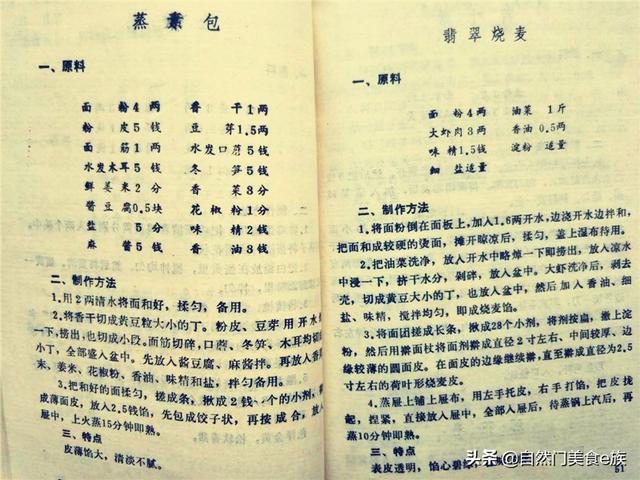 蒸素包
一、原料
面 粉4两 香 干1两
粉 皮5钱 豆 芽1.5两
面 筋1两 水发口蘑5钱
水发木耳5钱 冬 笋5钱
鲜姜末2分 香 菜3分
酱豆腐0.5块 花椒粉1分
盐 5分 味 精2钱
麻 酱5钱 香 油3钱
二、制作方法
1.用2两清水将面和好，揉匀，备用。
2.将香干切成黄豆粒大小的丁。粉皮、豆芽用开水
一下，捞出，也切成小段。面筋切碎，口蘑、冬笋、木耳均切
小丁，全部盛入盆中。先放入酱豆腐、麻酱拌。再放入香
末、姜米、花椒粉、香油、味精和盐，拌匀备用。
3.把和好的面揉匀，搓成条，揪成2钱一个的小剂，
成薄面皮，放入2.5钱馅，先包成饺子状，再按成合，放入
屉中，上火蒸15分钟即熟。
三、特点
皮薄馅大，清淡不腻。
翡翠烧麦
一、原料
面 粉4两 油菜 1斤
大虾肉3两 香油 0.5两
味 精1.5钱 淀粉 适量
细 盐适量
二、制作方法
1.将面粉倒在面板上，加入1.6两开水，边浇开水边拌和，
把面和成较硬的烫面，摊开晾凉后，揉匀，盖上湿布待用。
2.把油菜洗净，放入开水中略焯一下即捞出，放入凉水
中浸一下，挤干水分，剁碎，放入盆中。大虾洗净后，剥去
壳，切成黄豆大小的丁，也放入盆中，然后加入香油、细
盐、味精，搅拌均匀，即成烧麦馅。
3.将面团搓成长条，揪成28个小剂，将剂按扁，撒上淀
粉，然后用擀面杖将面剂擀成直径2寸左右、中间较厚、边
缘较薄的圆面皮。在面皮的边缘继续擀，直至擀成直径为2.5
寸左右的荷叶形烧麦皮。
4.蒸屉上铺上屉布，用左手托皮，右手打馅，把皮拢
起，捏紧，直接放入屉中，全部入屉后，待蒸锅上汽后，再
蒸10分钟即熟。
三、特点
表皮透明，馅心碧绿
51
头条 @自然门美食e族